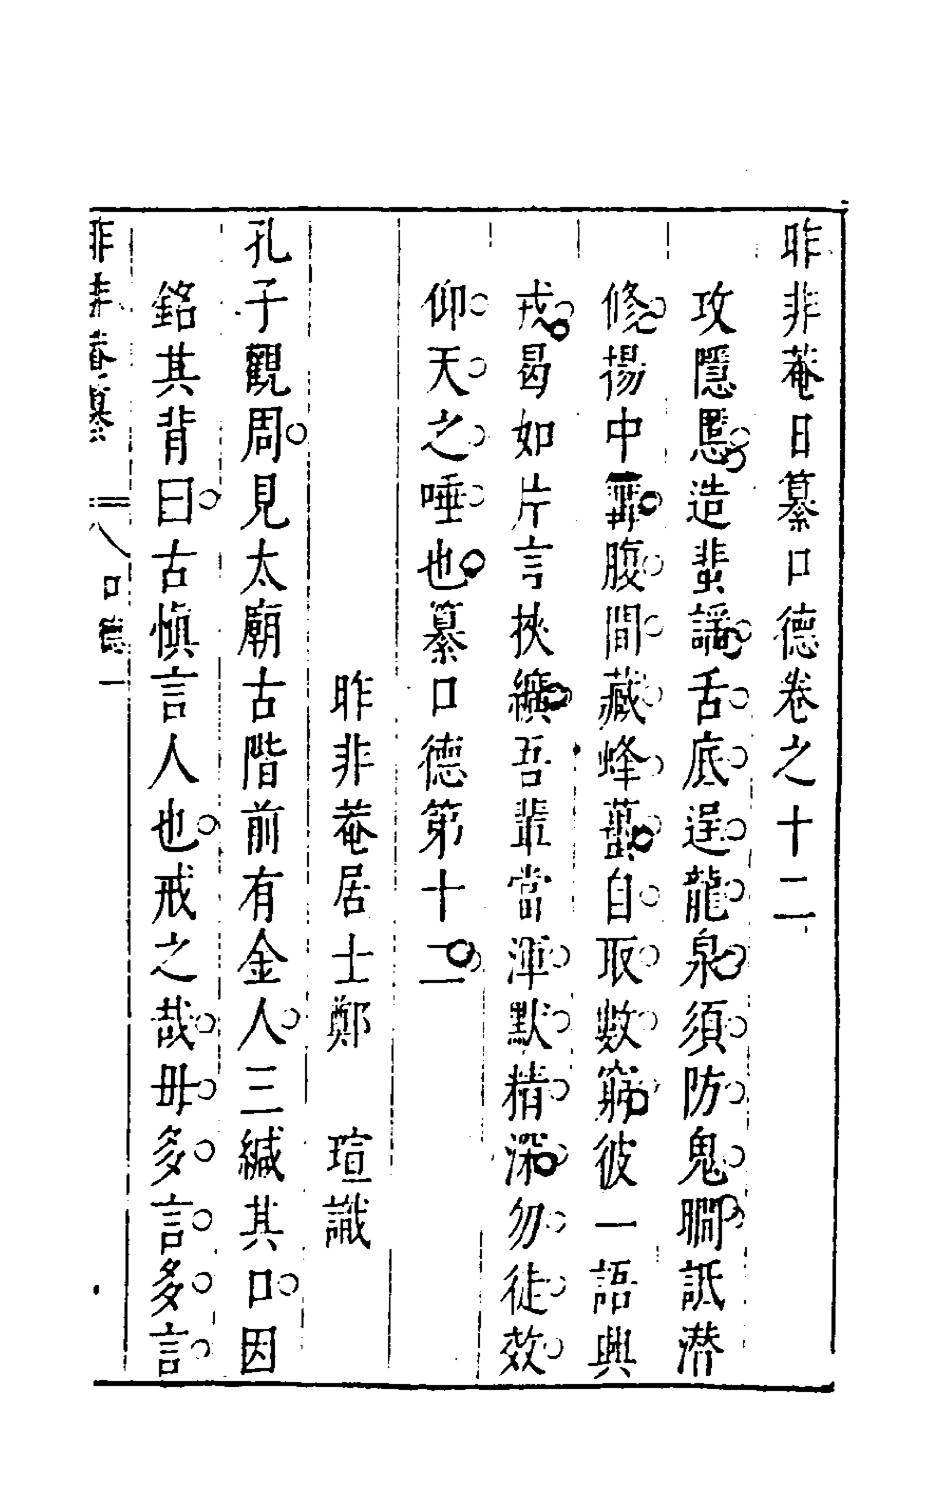 昨非菴日纂口德卷之十二
攻隱慝造蜚謡舌底逞龍泉須防鬼瞷詆潜
修揚中冓腹間藏蜂蠆自取數窮彼一語興
戎曷如片言挾纊吾輩當渾默精深勿徒效
仰天之唾也纂口德第十二
昨非菴居士鄭 瑄識
孔子觀周見太廟古階前有金人三緘其口因
銘其背曰古慎言人也戒之哉毋多言多言
非非菴纂 口德 一